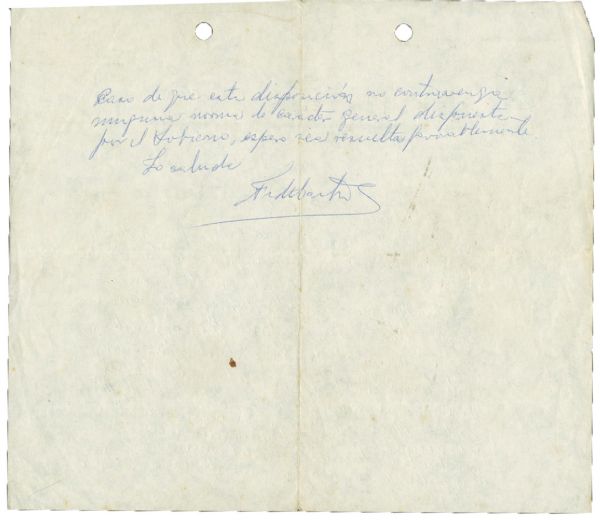 Caso de que esta disposición no contravenga
ninguna norma de carácter general dispuesta
por el Gobierno, espero sea resuelta favorablemente.
Lo saluda
Fidel Castro